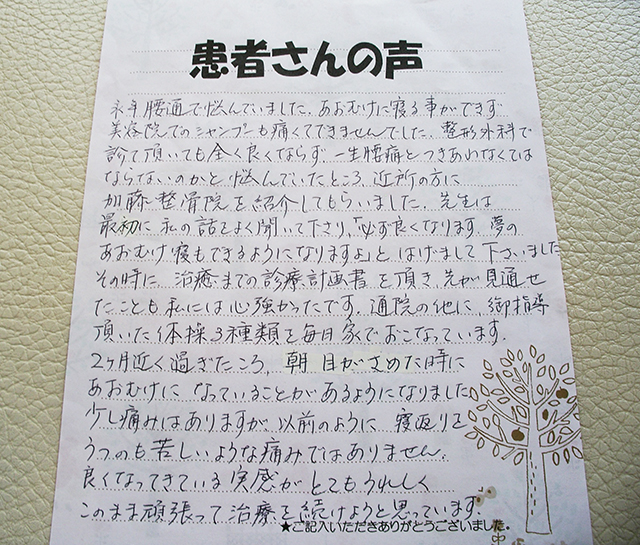 患者さんの声
永年腰通で悩んでいました。あおむけに寝る事ができず
美容院でのシャンプーも痛くてできませんでした。整形外科で
診て頂いても全く良くならず、一生腰痛とつきあわなくては
ならないのかと悩んでいたところ、近所の方に
加藤整骨院を紹介してもらいました。先生は
最初に私の話をよく聞いて下さり、「必ず良くなります。夢の
あおむけ寝もできるようになりますよ」とはげまして下さいました
その時に 治癒までの診療計画書を頂き、先が見通せ
たことも私には心強かったです。通院の他に、御指導
頂いた体操3種類を毎日家でおこなっています。
2ヶ月近く過ぎたころ、朝 目がさめた時に
あおむけに なっていることがあるようになりました
少し痛みはありますが、以前のように 寝返りを
うつのも苦しいような痛みではありません。
良くなってきている実感が とてもうれしく
このまま頑張って治療を続けようと思っています。
★ご記入いただきありがとうございました。